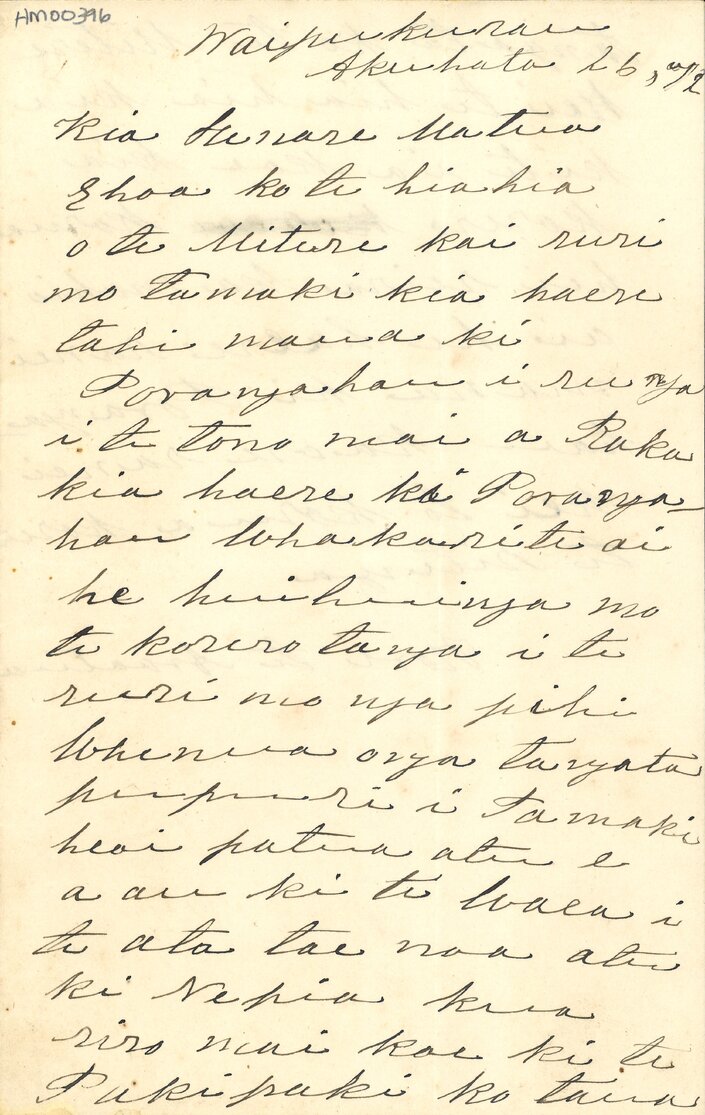 HM00396
Waipukurau
Akuhata 26, 1872
Kia Henare Matua
Ehoa ko te hiahia
o te Miture kai ruri
mo Tamaki kia haere
tahi maua ki
Porangahau i runga
i te tono mai a Raka
kia haere ki Poranga-
hau Whakarite ai
he huihuinga mo
te korerotanga i te
ruri mo nga pihi
Whenua onga tangata
pupuri i Tamaki
heoi patua atu e
a au ki te Waea i
te ata tae noa atu
ki Nepia kua
riro mai koe ki te
Pakipaki ko taua